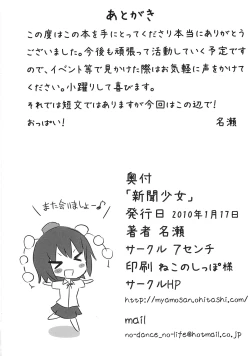 あとがき
この度はこの本を手にとってくださり本当にありがとう
ございました。今後も頑張って活動していく予定です
ので、イベント等で見かけた際はお気軽に声をかけて
ください。小躍りして喜びます。
それでは短文ではありますが今回はこの辺で!
おっぱい!
名瀬
また会いましょー♪
奥付
「新聞少女」
発行日 2010年1月17日
著者 名瀬
サークル 7センチ
印刷 ねこのしっぽ様
サークルHP
http://myamosan.ohitashi.com/
mail
no-dance_no-life@hotmail.co.jp